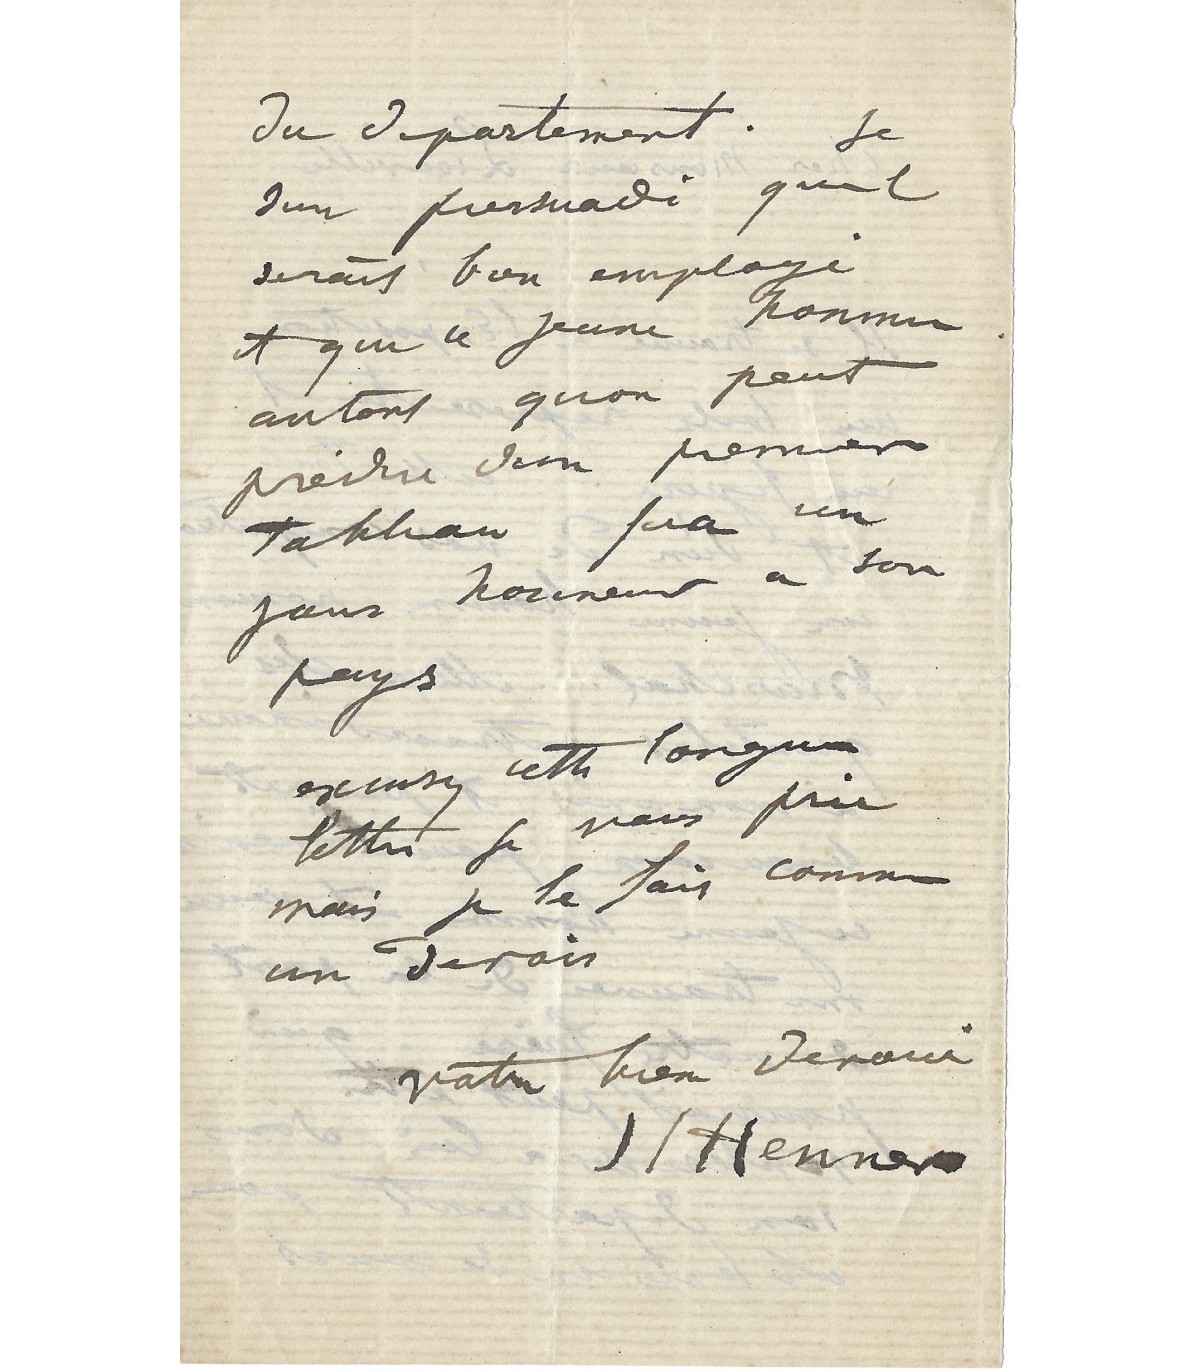 du departement. Je
suis persuadé quil
serais bien employé
et que ce jeune homme
autant quon peut
prédire dun premier
tableau fera un
jour honneur a son
pays
excusez cette longue
lettre je vous prie
mais je le fais comme
un devoir
votre bien devoué
JJ Henner